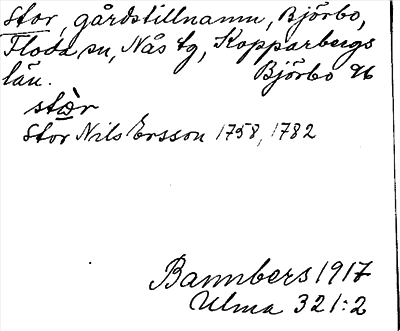 Stor, gårdstillnamn, Björbo,
Floda sn, Nås tg, Kopparbergs
län. Björbo 96
stòr
Stor Nils Ersson 1758, 1782
Bannbers 1917
Ulma 321:2